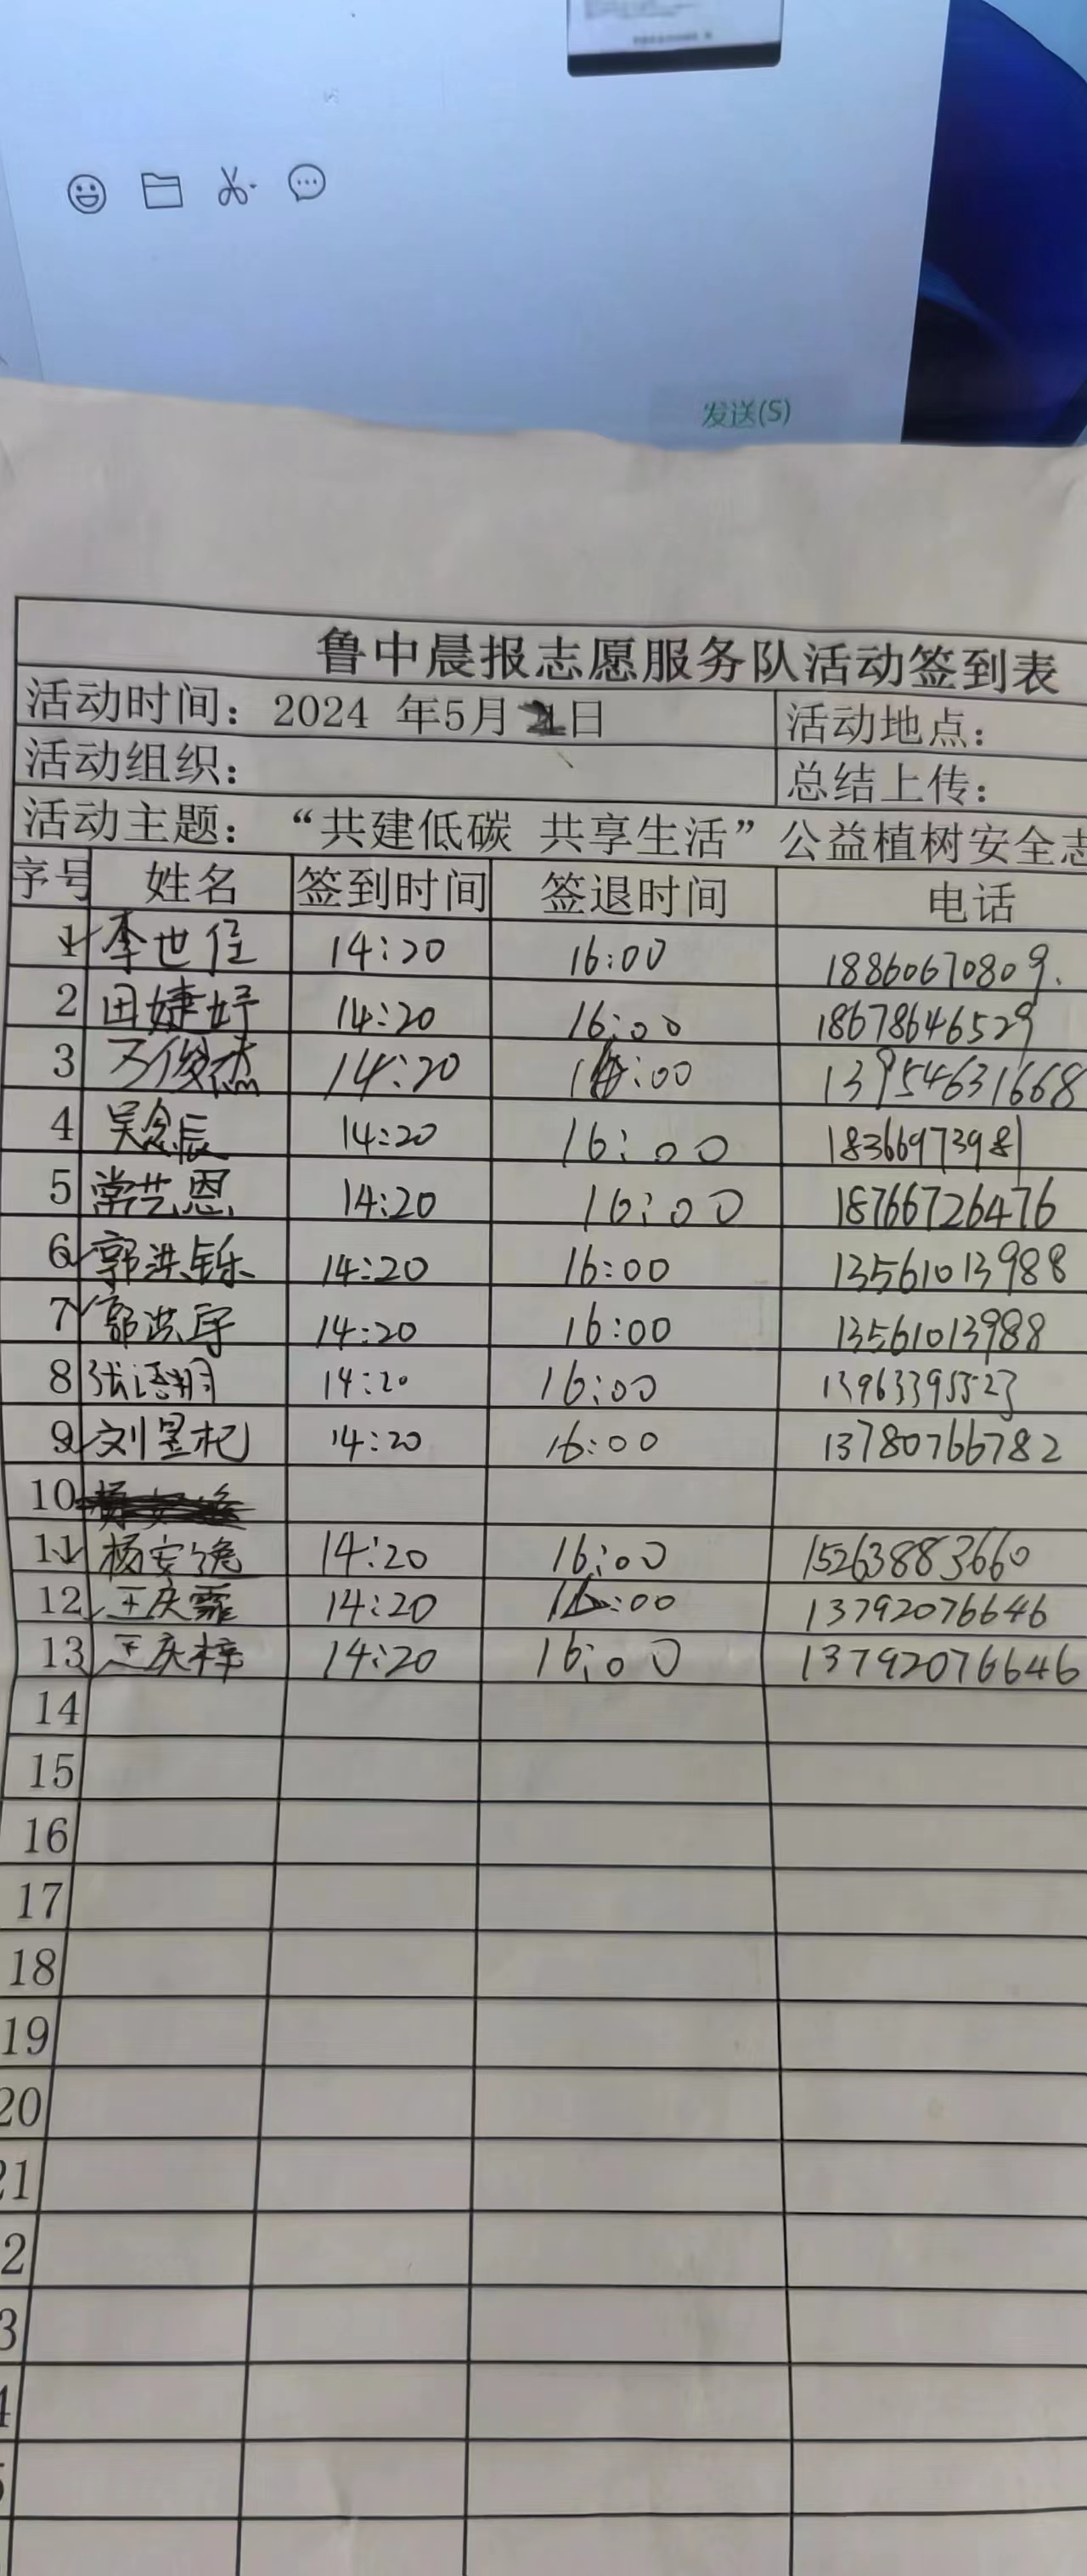 发送(S)
鲁中晨报志愿服务队活动签到表
活动时间：2024 年5月 日 活动地点：
活动组织： 总结上传：
活动主题：“共建低碳 共享生活”公益植树安全志
序号 姓名 签到时间 签退时间 电话
1 李世侄 14:20 16:00 18860670809.
2 田婕妤 14:20 16:00 18678646529
3 俊杰 14:20 16:00 13954631668
4 吴念辰 14:20 16:00 18366973981
5 常艺恩 14:20 16:00 18766726476
6 郭洪铄 14:20 16:00 13561013988
7 郭洪宇 14:20 16:00 13561013988
8 张语翔 14:20 16:00 13963395523
9 刘昱杞 14:20 16:00 13780766782
10
11 杨安逸 14:20 16:00 15263883660
12 王庆霖 14:20 16:00 13792076646
13 王庆梓 14:20 16:00 13792076646
14
15
16
17
18
19
20
21
2
3
4
5